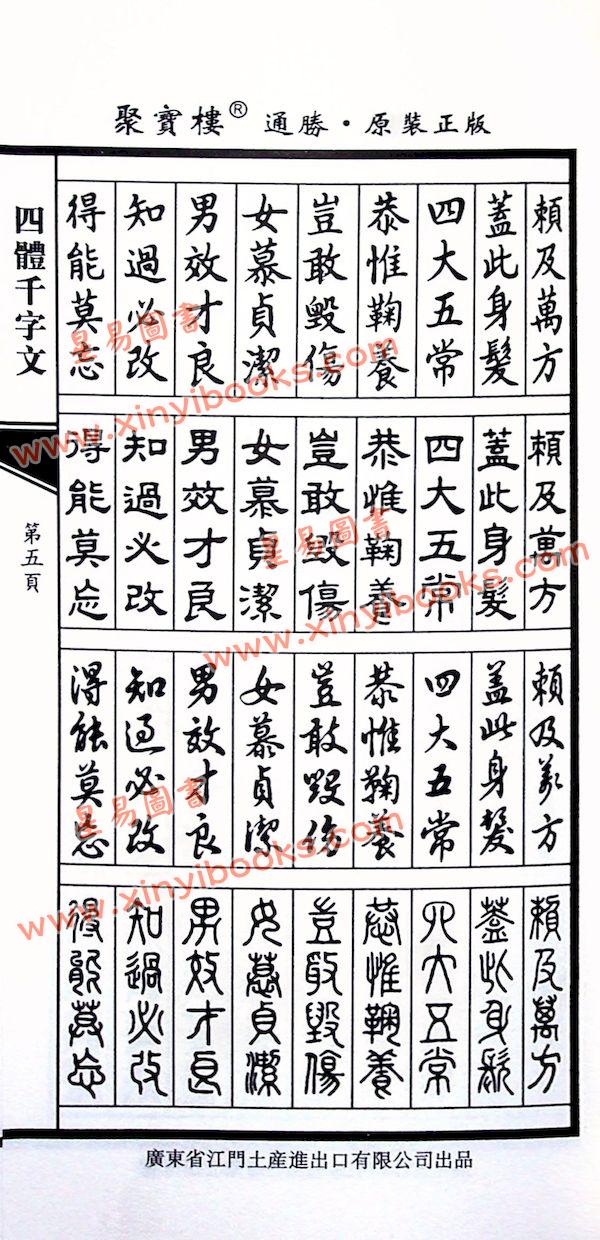 聚寶樓® 通勝・原裝正版
賴及萬方
蓋此身髮
四大五常
恭惟鞠養
豈敢毀傷
女慕貞潔
男效才良
知過必改
得能莫忘
賴及萬方
蓋此身髮
四大五常
恭惟鞠養
豈敢毀傷
女慕貞潔
男效才良
知過必改
得能莫忘
賴及萬方
蓋此身髮
四大五常
恭惟鞠養
豈敢毀傷
女慕貞潔
男效才良
知過必改
得能莫忘
賴及萬方
蓋此身髮
四大五常
恭惟鞠養
豈敢毀傷
女慕貞潔
男效才良
知過必改
得能莫忘
四體千字文
第五頁
廣東省江門土産進出口有限公司出品
星易圖書
www.xinyibooks.com
星易圖書
www.xinyibooks.com
星易圖書
www.xinyibooks.com